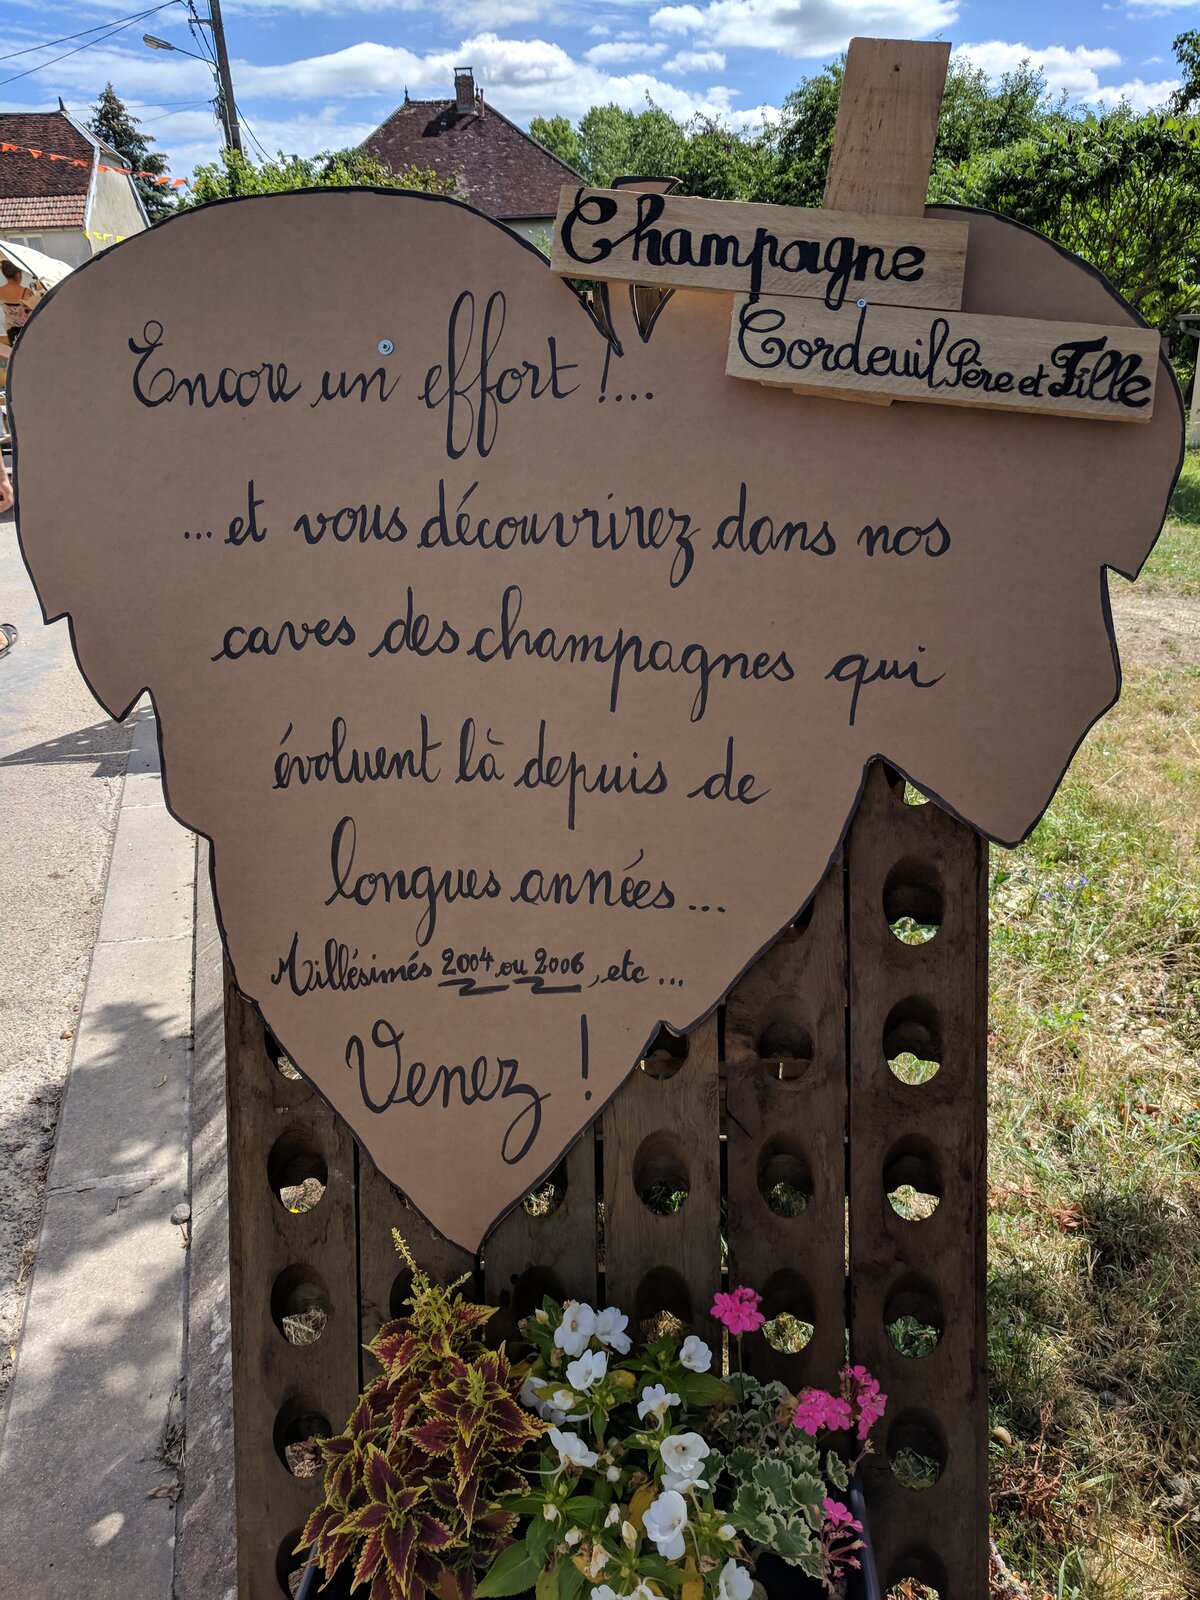 Champagne
Cordeuil Père et Fille
Encore un effort !...
...et vous découvrirez dans nos
caves des champagnes qui
évoluent là depuis de
longues années...
Millésimés 2004 ou 2006, etc...
Venez !